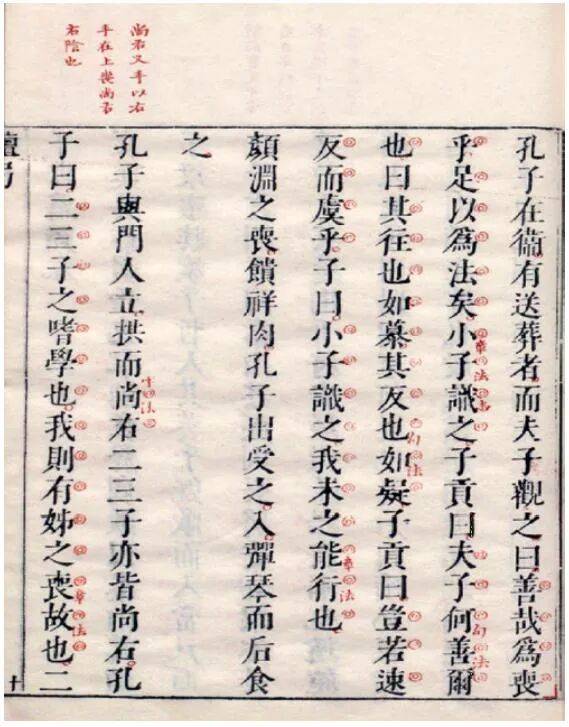 尚右叉手以右
手在上喪尚右
右陰也
孔子在衛有送葬者而夫子觀之曰善哉爲喪
乎足以爲法矣小子識之子貢曰夫子何善爾
章法
句法
也曰其往也如慕其反也如疑子貢曰豈若速
句法
反而虞乎子曰小子識之我未之能行也
章法
顏淵之喪饋祥肉孔子出受之入彈琴而后食
之
孔子與門人立拱而尚右二三子亦皆尚右孔
字法
子曰二三子之嗜學也我則有姊之喪故也二
章法
檀弓